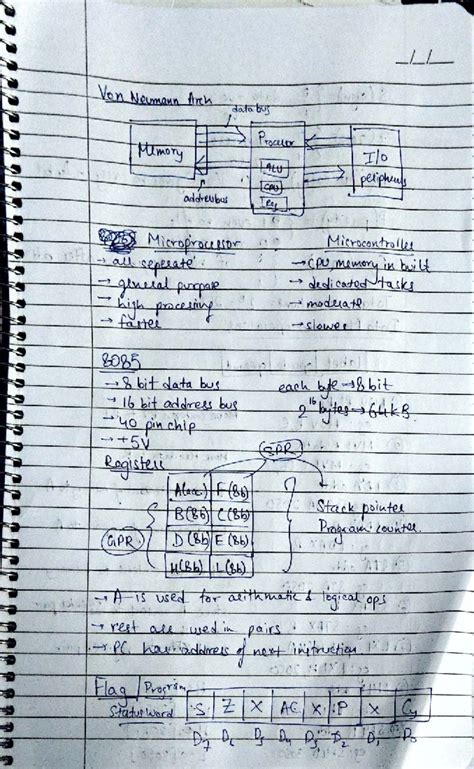 Von Neumann Arch
data bus
Memory
Procesor
ALU
CPU
Reg
I/O
peripherals
address bus
Microprocessor
Microcontroller
→ all seperate
→ CPU, memory in built
→ general purpose
→ dedicated tasks
→ high processing
→ moderate
→ faster
→ slower
8085
→ 8 bit data bus
each byte → 8 bit
→ 16 bit address bus
2^16 bytes → 64kB
→ 40 pin chip
→ +5V
Registers
GPR
A(acc) F(8b)
B(8b) C(8b)
D(8b) E(8b)
H(8b) L(8b)
GPR
Stack pointer
Program counter
→ A is used for arithmatic & logical ops
→ rest are used in pairs
→ PC has address of next instruction
Flag Program
Status Word
S Z X AC X P X Cy
D7 D6 D5 D4 D3 D2 D1 D0